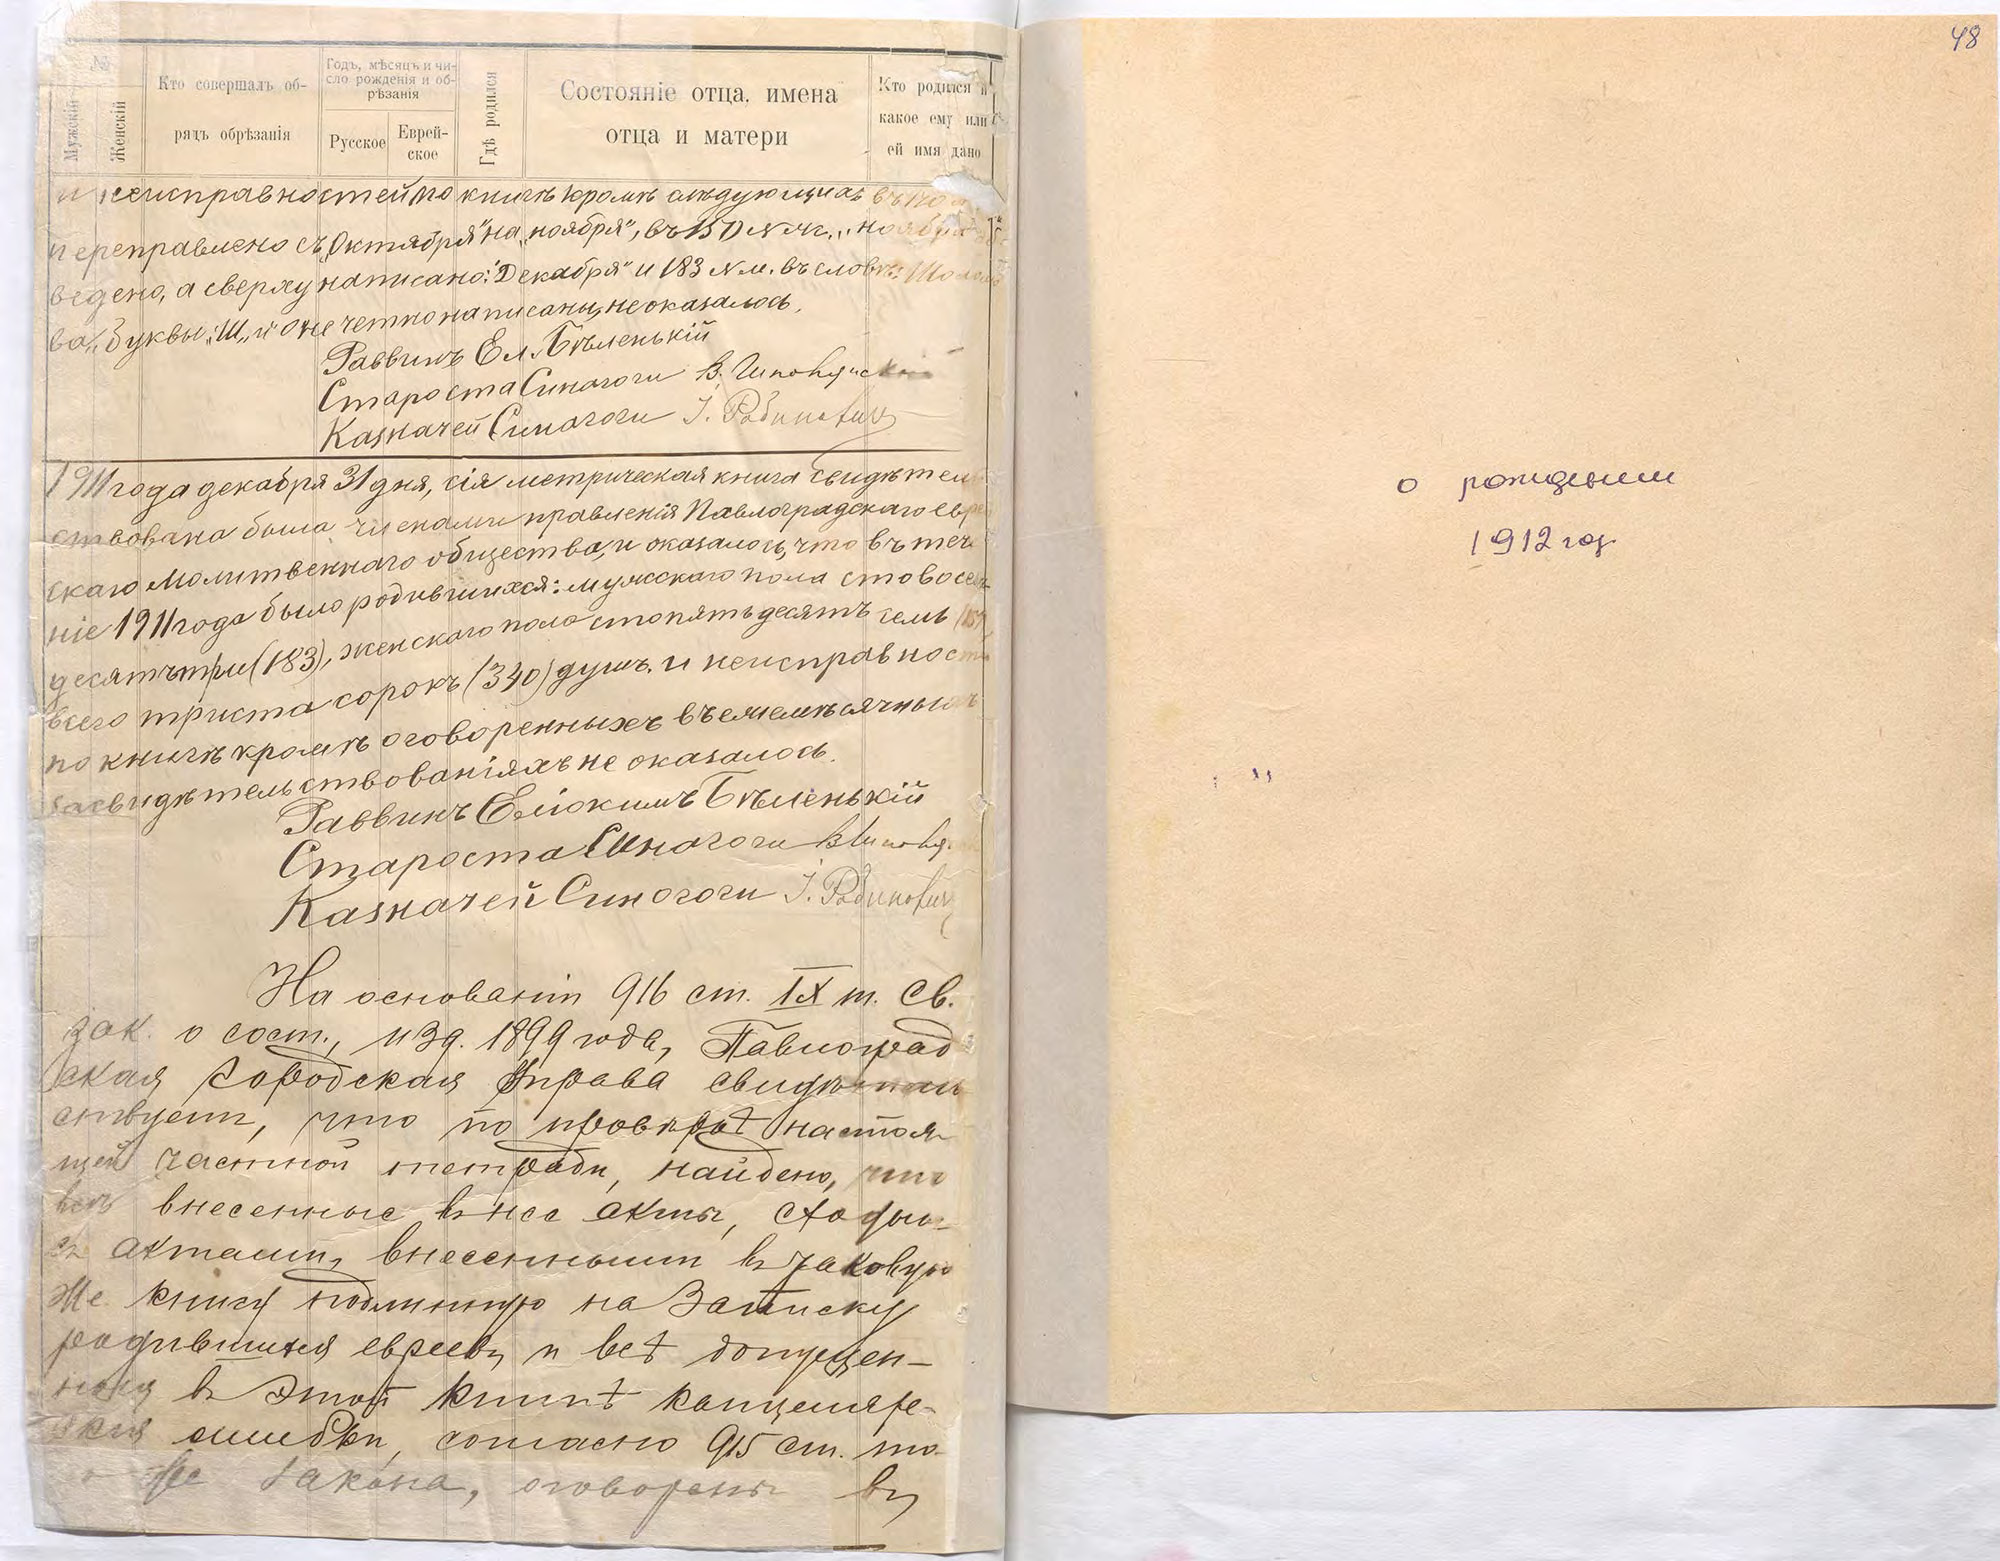 №
Мужскій
Женскій
Кто совершалъ об-
рядъ обрѣзанія
Годъ, мѣсяцъ и чи-
сло рожденія и об-
рѣзанія
Русское
Еврей-
ское
Гдѣ родился
Состояніе отца, имена
отца и матери
Кто родился и
какое ему или
ей имя дано
и неисправностей по книгѣ кромѣ слѣдующихъ въ
переправлено съ „Октября" на „ноября", въ 150 № м. „ноября"
ведено, а сверху написано: „Декабря" и 183 № м. въ словѣ:
ва" буквы „Ш" и „о" не четко написаны, не оказалось.
Раввинъ Ел. Бѣленькій
Староста Синагоги В.
Казначей Синагоги І. Рабиновичъ
1911 года декабря 31 дня, сія метрическая книга свидѣтель
ствована была членами правленія Павлоградскаго евре
скаго Молитвеннаго общества, и оказалось, что въ тече
ніе 1911 года было родившихся: мужскаго пола сто восем
десятъ три (183), женскаго пола сто пятьдесятъ семь (157),
всего триста сорокъ (340) душъ. и неисправности
по книгѣ кромѣ оговоренныхъ въ ежемѣсячныхъ
засвидѣтельствованіяхъ не оказалось.
Раввинъ Еліокимъ Бѣленькій
Староста Синагоги В.
Казначей Синагоги І. Рабиновичъ
На основаніи 916 ст. IX т. Св.
зак. о сост., изд. 1899 года, Павлоград
ская Городская Управа свидѣтель
ствуетъ, что по провѣркѣ настоя
щей частной тетради, найдено, что
всѣ внесенные въ нее акты, сходны
съ актами, внесенными въ таковую
же книгу подлинную на записку
родившихся евреевъ и всѣ допущен-
ныя въ этой книгѣ канцеляр-
скія ошибки, согласно 915 ст. то
го же закона, оговорены въ
48
о рождении
1912 год